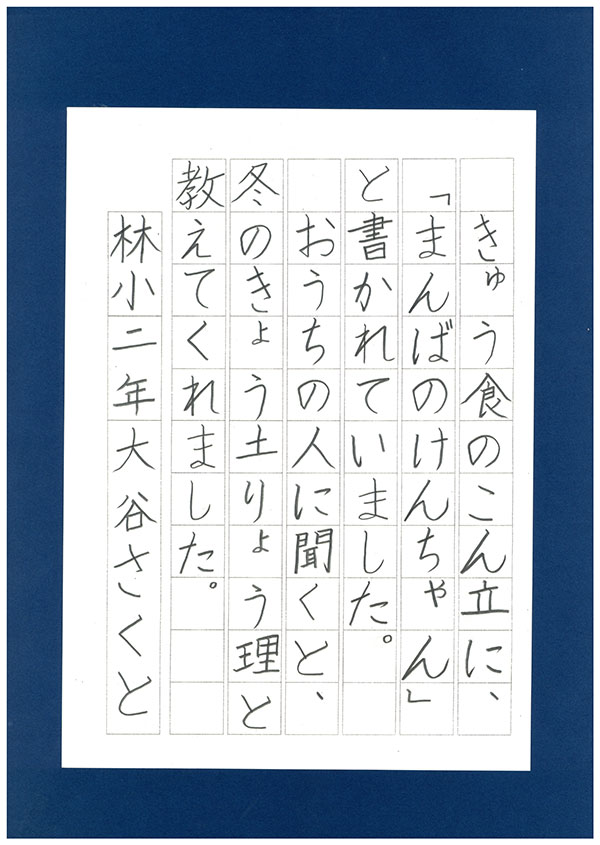 きゅう食のこん立に、
「まんばのけんちゃん」
と書かれていました。
おうちの人に聞くと、
冬のきょう土りょう理と
教えてくれました。
林小二年大谷さくと